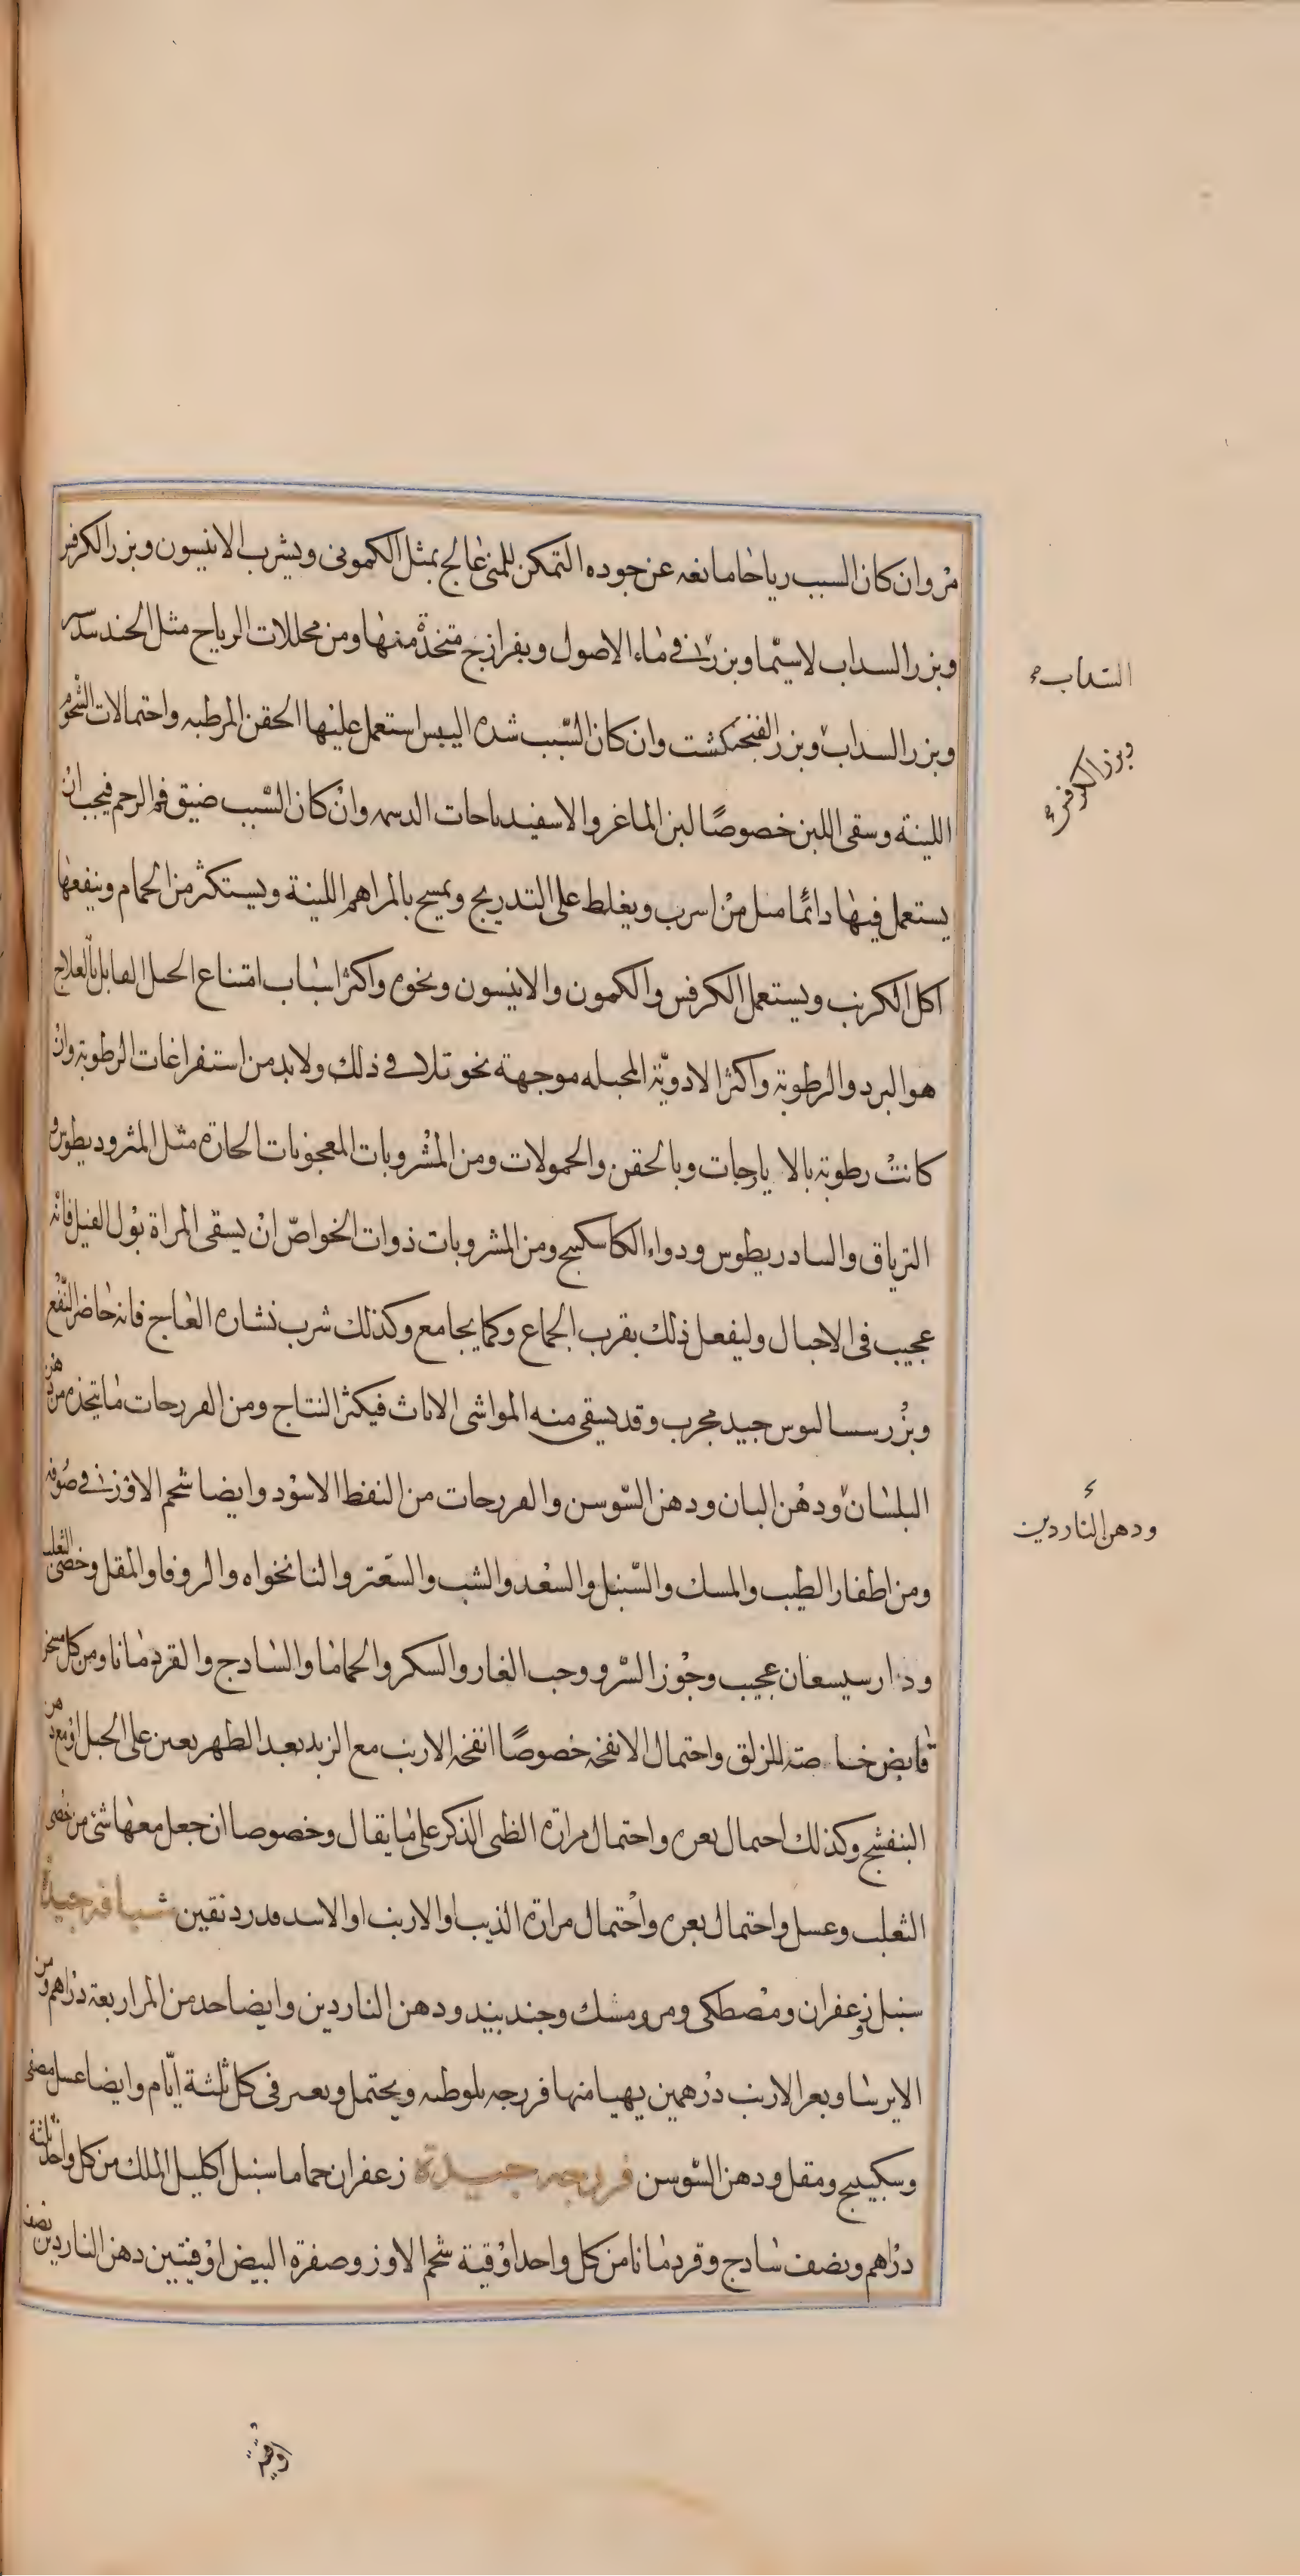 مر وان كان السبب رياحا مانعه عن جوده التمكن للمنى عالج بمثل الكمونى ويشرب الانيسون وبزر الكرفس
وبزر السداب لاسيما وبزر فى ماء الاصول وبفرازج متخذة منها ومن محللات الرياح مثل الجندبيدستر
وبزر السداب وبزر الفنجنكشت وان كان السبب شده اليبس استعمل عليها الحقن المرطبه واحتمالات الشحوم
السدابء
وبزر الكرفسء
اللينة وسقى اللبن خصوصا لبن الماغر والاسفيدباحات الدسمه وان كان السبب ضيق فم الرحم فيجب ان
يستعمل فيها دائما ميل من اسرب ويغلط على التدريج ويمسح بالمراهم اللينة ويستكثر من الحمام وينفعها
اكل الكرنب ويستعمل الكرفس والكمون والانيسون ونحوه واكثر اسباب امتناع الحبل القابل بالعلاج
هو البرد والرطوبة واكثر الادوية المحبله موجهة نحو تلافى ذلك ولابد من استفراغات الرطوبة وان
كانت رطوبة بالايارجات وبالحقن والحمولات ومن المشروبات المعجونات الحارة مثل المثروديطوس و
الترياق والسادريطوس ودواء الكاسكبينج ومن المشروبات ذوات الخواص ان يسقى المراة بول الفيل فانه
عجيب فى الاحبال وليفعل ذلك بقرب الجماع وكما يجامع وكذلك شرب نشاره العاج فانه حاضر النفع
وبزر سساليوس جيد مجرب وقد يسقى منه المواشى الاناث فيكثر النتاج ومن الفررجات ما يتخذ من دهن
البلسان ودهن البان ودهن السوسن والفررجات من النفط الاسود وايضا شحم الاوز فى صوفه
ء
ودهن الناردين
ومن اطفار الطيب والمسك والسنبل والسعد والشب والسعتر والنانخواه والزوفا والمقل وخصى الثعلب
ودارسيسعان عجيب وجوز السرو وحب الغار والسكر والحماما والسادج والقردمانا ومن كل مسخن
قابض خاصة للزلق واحتمال الانفحه خصوصا انفحه الارنب مع الزبد بعد الطهر يعين على الحبل او مع دهن
البنفشج وكذلك احتمال بعره واحتمال مرارة الظبى الذكر على ما يقال وخصوصا ان جعل معها شئ من خصى
الثعلب وعسل واحتمال بعره واحتمال مرارة الذيب او الارنب او الاسد قدر دنقين شيافه جيدة
سنبل وزعفران ومصطكى ومر ومسك وجندبيد ودهن الناردين وايضا حد من المر اربعة دراهم ومن
الايرسا وبعر الارنب درهمين يهيا منها فررجه بلوطه ويحتمل ويعىر فى كل ثلثة ايام وايضا عسل مصفى
وسكبينج ومقل ودهن السوسن فررجه جيدة زعفران حماما سنبل اكليل الملك من كل واحد ثلثة
دراهم ونصف سادج وقردمانا من كل واحد اوقية شحم الاوز وصفرة البيض اوقيتين دهن الناردين نصف
اوقية